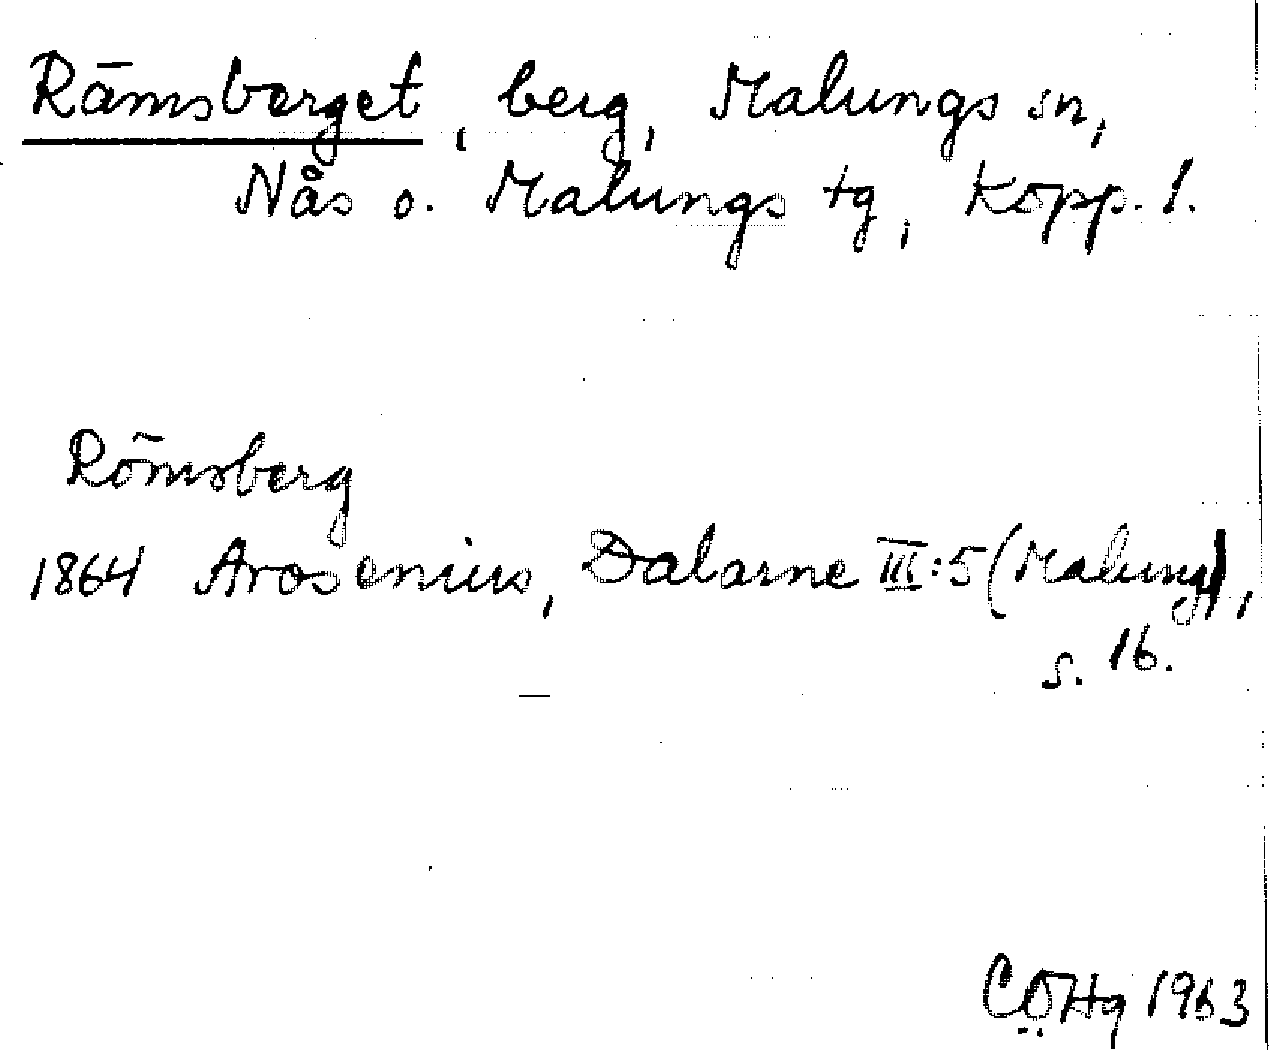 Rämsberget, berg, Malungs sn,
Nås o. Malungs tg, Kopp. l.
Römsberg
1864 Arosenius, Dalarne III:5 (Malung),
s. 16.
CÖHg 1963